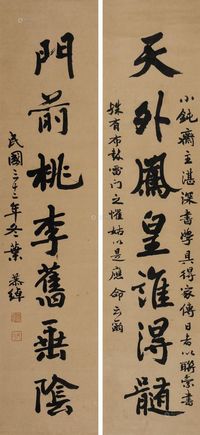 天外鳳皇誰得髓
小鈍齋主湛深書學具得家傳日者以聯索書
殊有布鼓雷門之懼姑以是應命云爾
門前桃李舊垂陰
民國二十二年冬葉恭綽